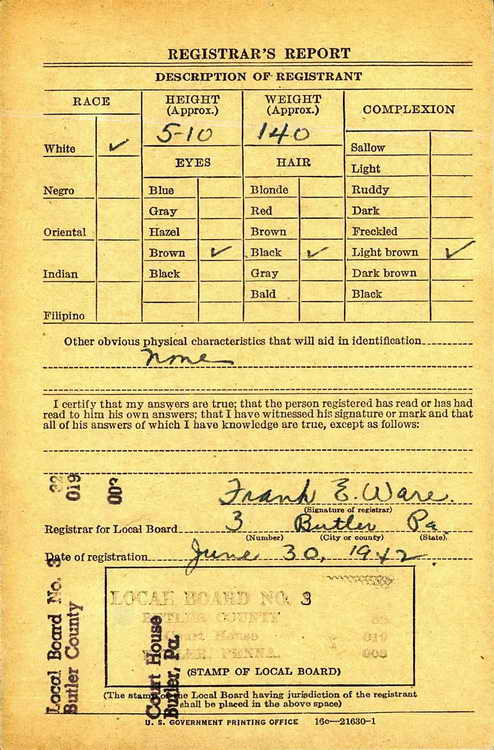 REGISTRAR'S REPORT
DESCRIPTION OF REGISTRANT
RACE
HEIGHT
(Approx.)
WEIGHT
(Approx.)
COMPLEXION
White ✓
5-10
140
Sallow
Light
EYES
HAIR
Negro
Blue
Blonde
Ruddy
Gray
Red
Dark
Oriental
Hazel
Brown
Freckled
Brown ✓
Black ✓
Light brown ✓
Indian
Black
Gray
Dark brown
Bald
Black
Filipino
Other obvious physical characteristics that will aid in identification
None
I certify that my answers are true; that the person registered has read or has had
read to him his own answers; that I have witnessed his signature or mark and that
all of his answers of which I have knowledge are true, except as follows:
32
019
003
Frank E. Ware.
(Signature of registrar)
Registrar for Local Board 3 Butler Pa.
(Number) (City or county) (State)
Date of registration June 30, 1942.
Local Board No. 3
Butler County
Court House
Butler, Pa.
LOCAL BOARD NO. 3
BUTLER COUNTY
Court House
019
PENNA.
(STAMP OF LOCAL BOARD)
(The stamp of the Local Board having jurisdiction of the registrant
shall be placed in the above space)
U. S. GOVERNMENT PRINTING OFFICE 16c—21630-1